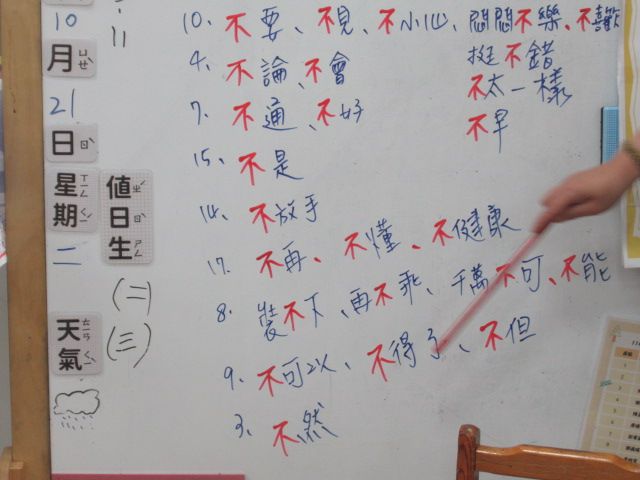 10
月 ㄩㄝˋ
21
日 ㄖˋ
星期 ㄒㄧㄥ ㄑㄧˊ
二
值日生 ㄓˊ ㄖˋ ㄕㄥ
(二)
(三)
天氣 ㄊㄧㄢ ㄑㄧˋ
10、不要、不見、不小心、悶悶不樂、不喜歡
4、不論、不會 挺不錯
不太一樣
7、不通、不好
不早
15、不是
14、不放手
17、不再、不懂、不健康
8、裝不下、再不乖、千萬不可、不能
9、不可以、不得了、不但
3、不然